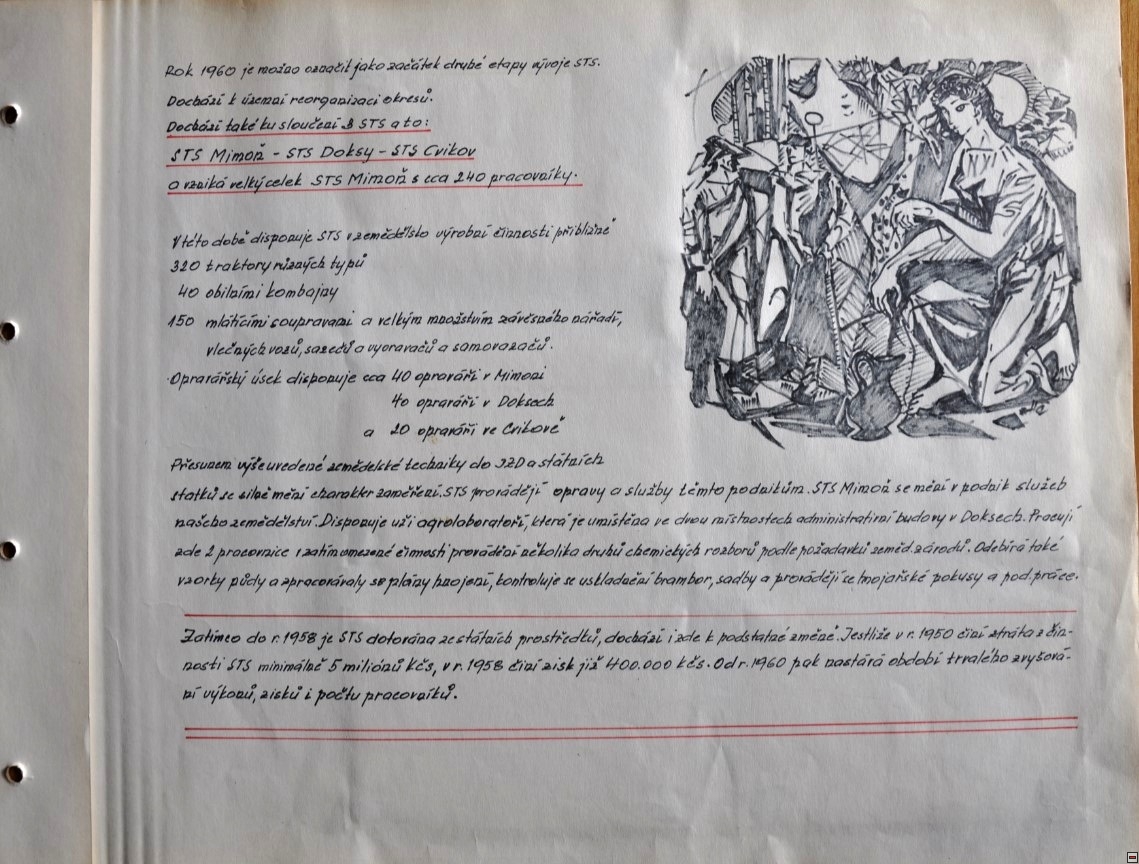 Rok 1960 je možno označit jako začátek druhé etapy vývoje STS.
Dochází k územní reorganizaci okresů.
Dochází také ku sloučení 3 STS a to:
STS Mimoň - STS Doksy - STS Cvikov
a vzniká velký celek STS Mimoň s cca 240 pracovníky.
V této době disponuje STS v zemědělsko výrobní činnosti přibližně
320 traktory různých typů
40 obilními kombajny
150 mlátícími soupravami a velkým množstvím závěsného nářadí,
vlečných vozů, sazečů a vyoravačů a samovazačů.
Opravářský úsek disponuje cca 40 opraváři v Mimoni
40 opraváři v Doksech
a 20 opraváři ve Cvikově
Přesunem výše uvedené zemědělské techniky do JZD a státních
statků se silně mění charakter zaměření. STS provádějí opravy a služby těmto podnikům. STS Mimoň se mění v podnik služeb
našeho zemědělství. Disponuje už i agrolaboratoří, která je umístěna ve dvou místnostech administrativní budovy v Doksech. Pracují
zde 2 pracovnice i zatím omezené činnosti provádění několika druhů chemických rozborů podle požadavků zeměd. závodů. Odebírá také
vzorky půdy a zpracovávaly se plány hnojení, kontroluje se uskladnění brambor, sadby a provádějí se hnojařské pokusy a pod. práce.
Zatímco do r. 1958 je STS dotována ze státních prostředků, dochází i zde k podstatné změně. Jestliže v r. 1950 činí ztráta z čin-
nosti STS minimálně 5 miliónů Kčs, v r. 1958 činí zisk již 400.000 kčs. Od r. 1960 pak nastává období trvalého zvyšová-
ní výkonů, zisků i počtu pracovníků.